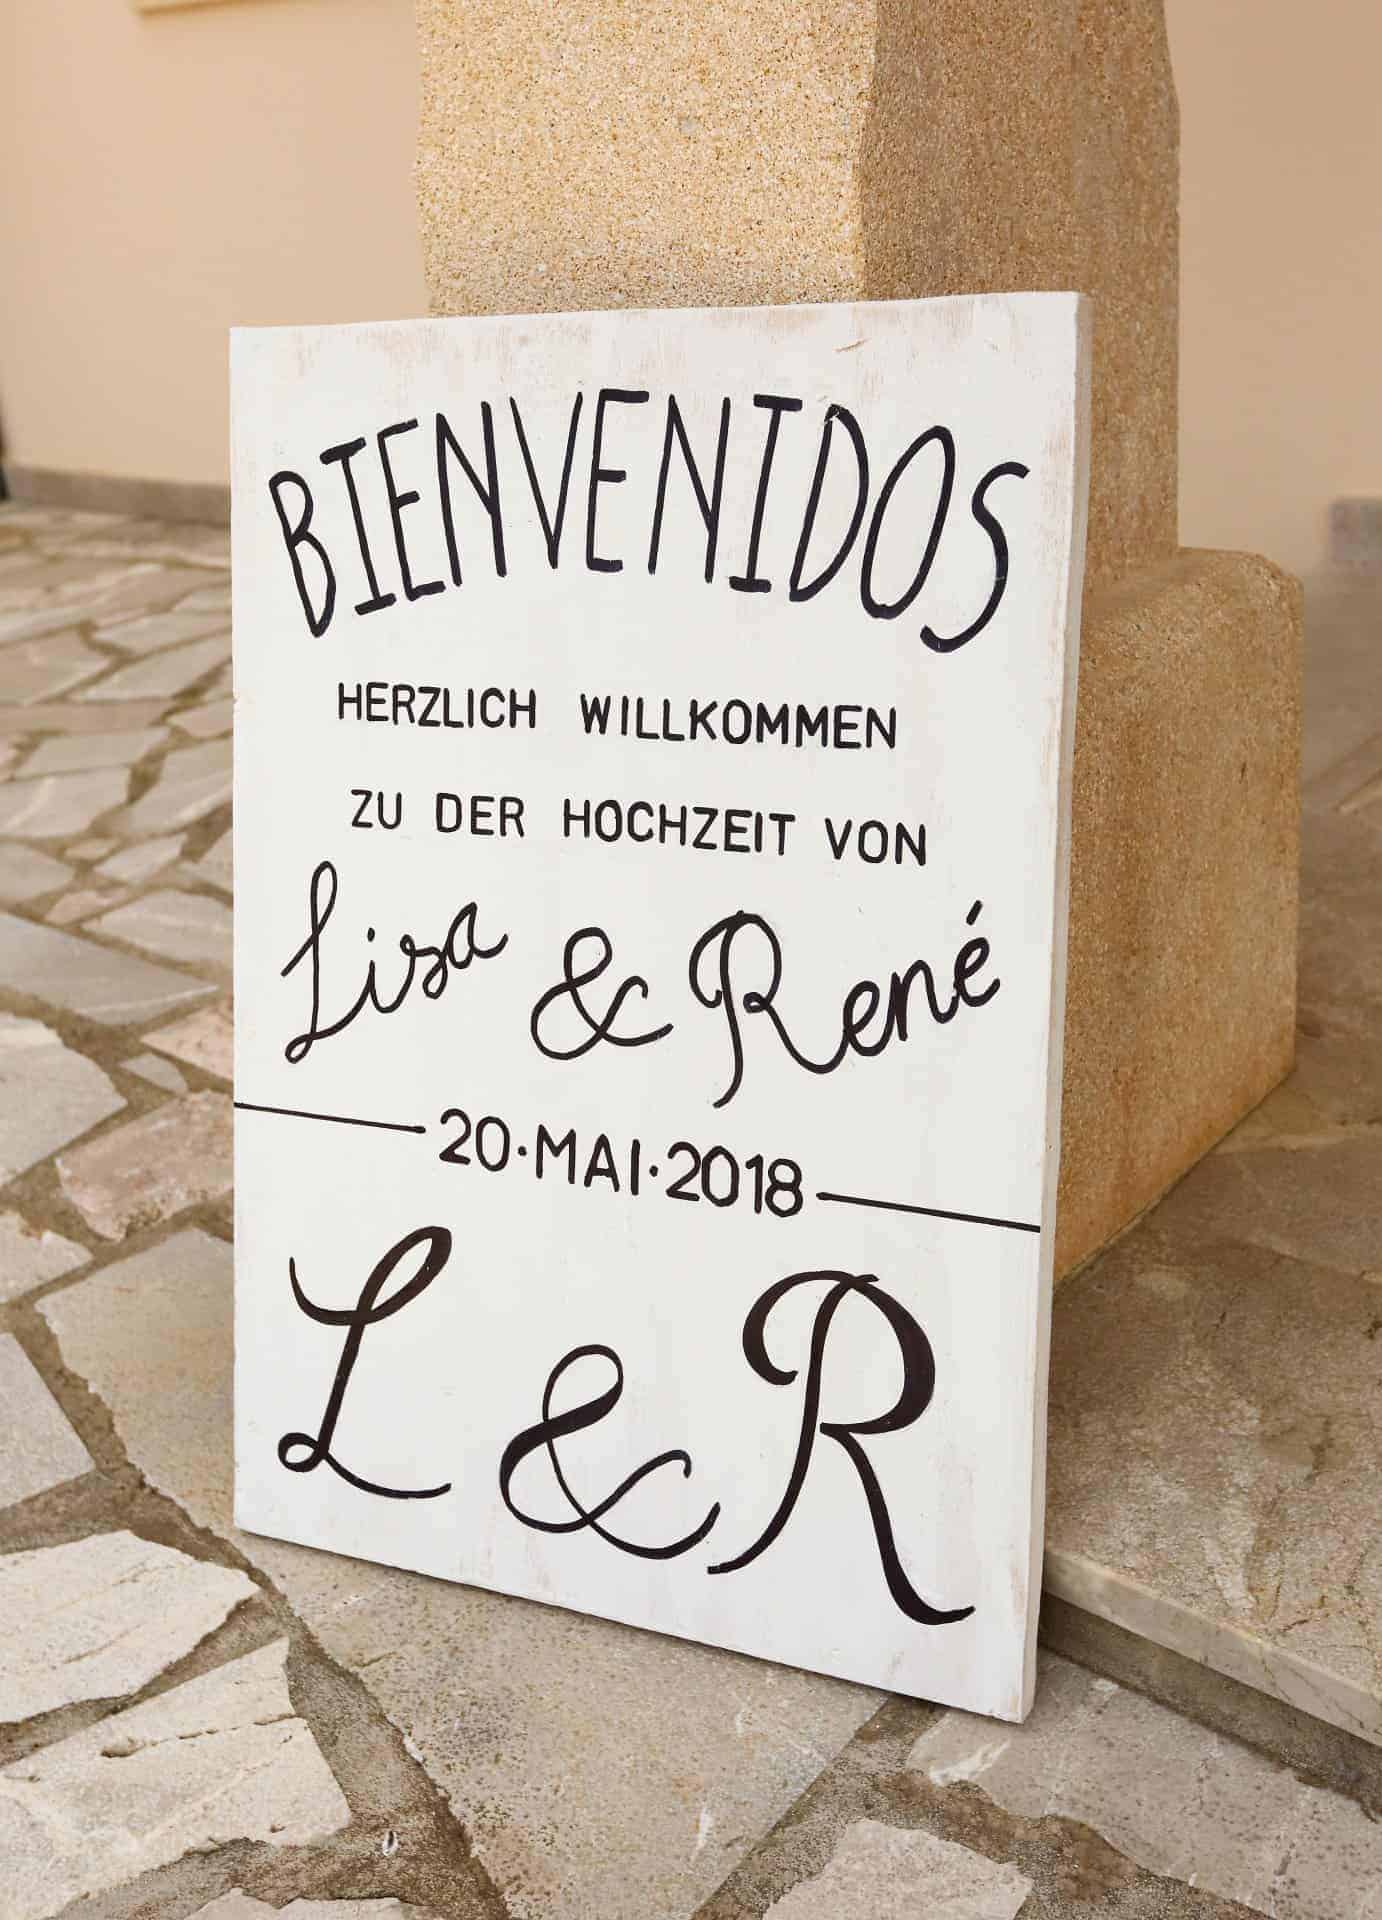 BIENVENIDOS
HERZLICH WILLKOMMEN
ZU DER HOCHZEIT VON
Lisa & René
20·MAI·2018
L & R